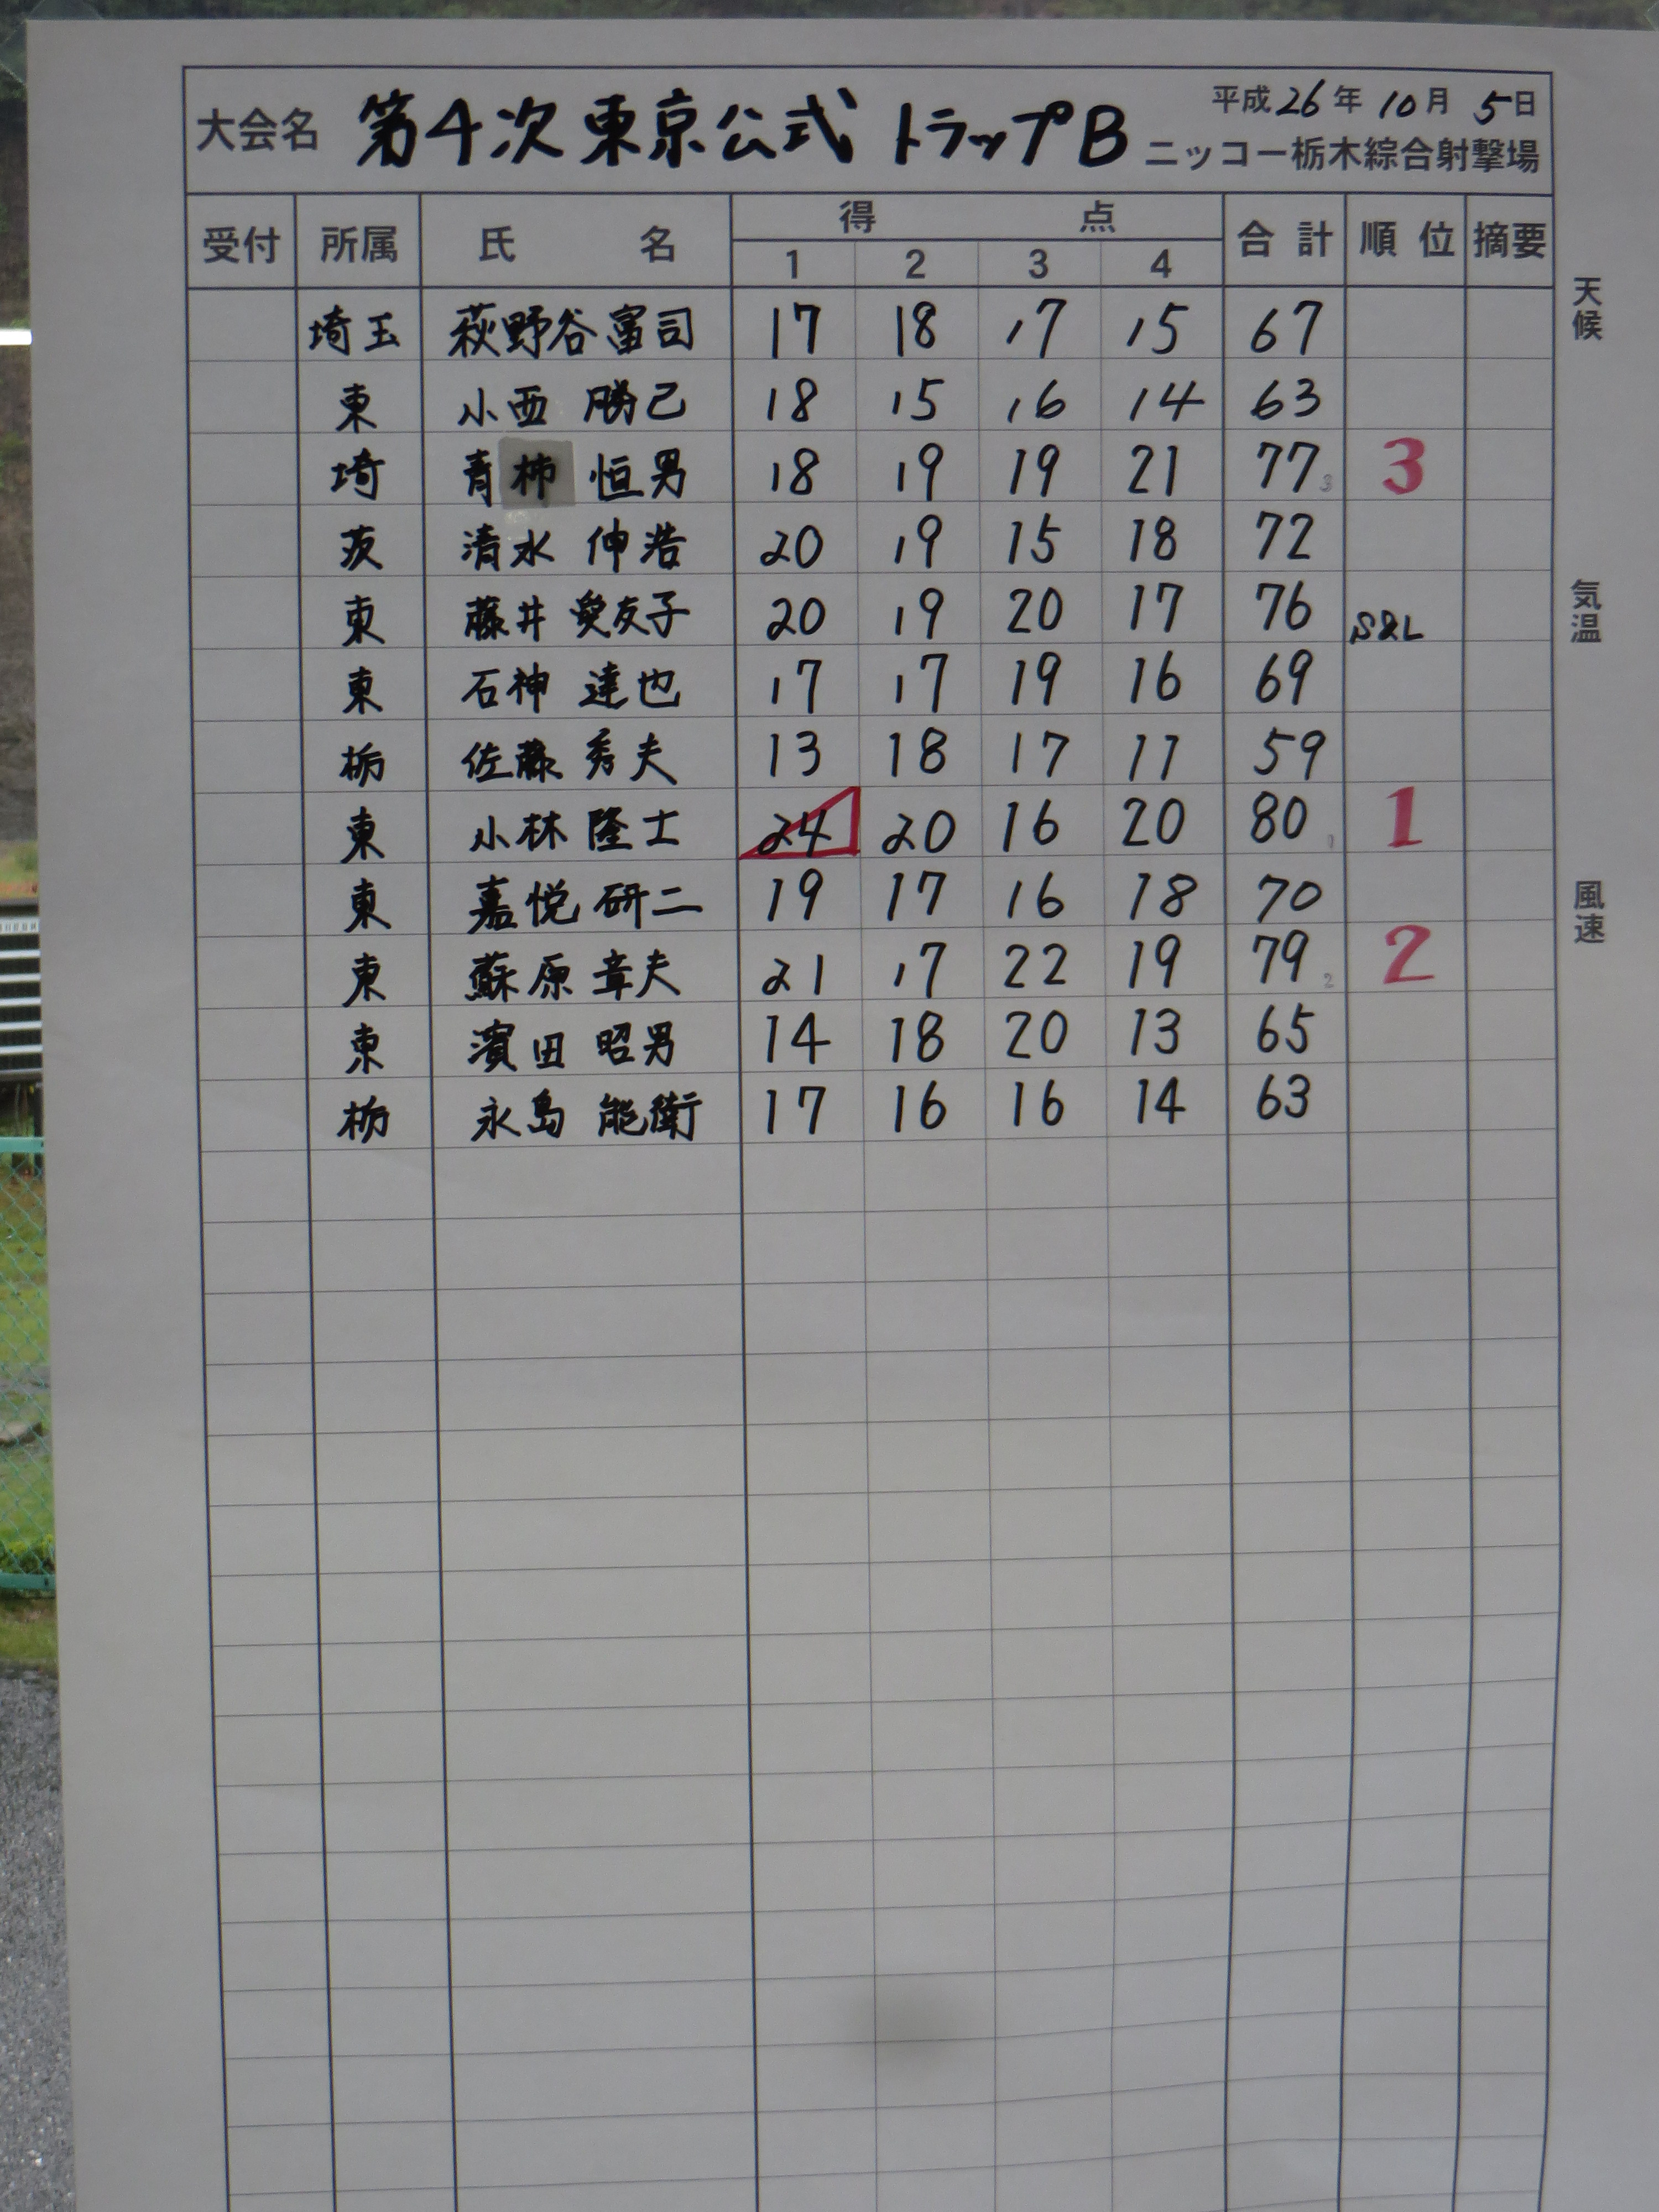 平成26年10月5日
大会名 第4次東京公式 トラップB ニッコー栃木綜合射撃場
受付 所属 氏名 得点 合計 順位 摘要
1 2 3 4
天候
埼玉 萩野谷富司 17 18 17 15 67
東 小西 勝己 18 15 16 14 63
埼 青柿 恒男 18 19 19 21 77 3 3
茨 清水 伸浩 20 19 15 18 72
気温
東 藤井 愛友子 20 19 20 17 76 S&L
東 石神 達也 17 17 19 16 69
栃 佐藤 秀夫 13 18 17 11 59
東 小林 隆士 24 20 16 20 80 1 1
東 嘉悦 研二 19 17 16 18 70
風速
東 蘇原 章夫 21 17 22 19 79 2 2
東 濱田 昭男 14 18 20 13 65
栃 永島 能衛 17 16 16 14 63